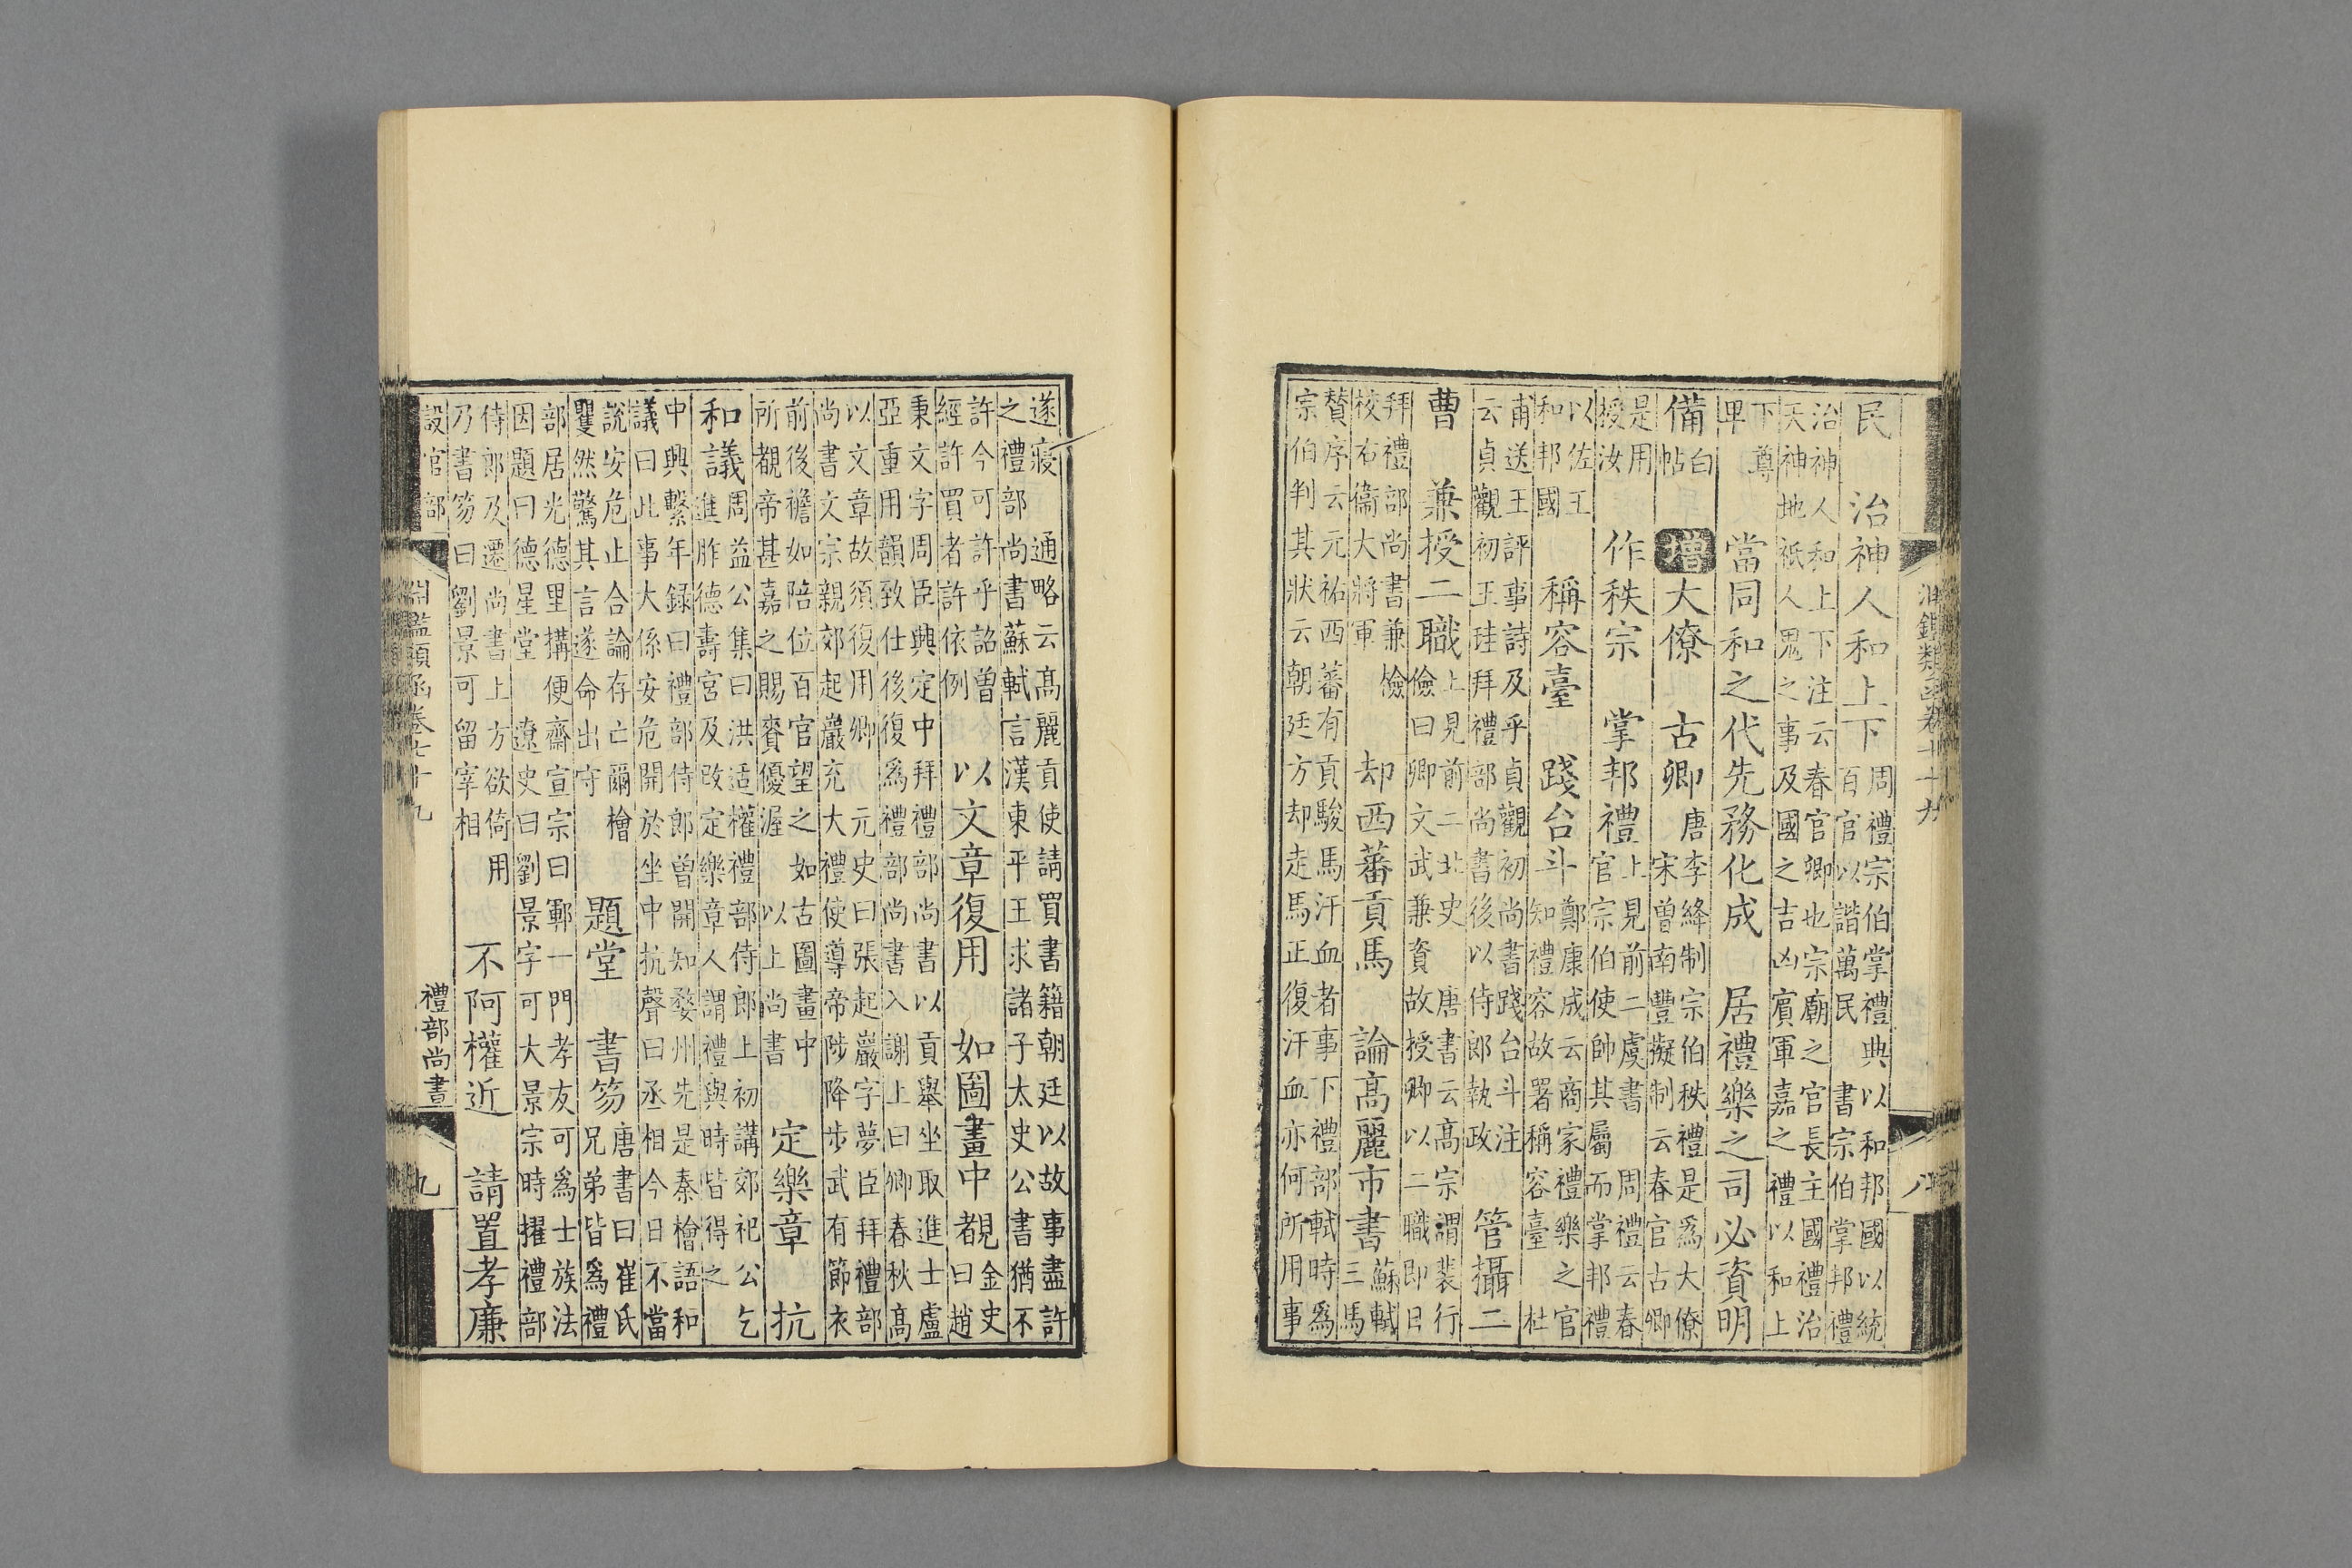 淵鑑類函卷七十九 八
民 治神人和上下 周禮宗伯掌禮典以和邦國以統
百官以諧萬民 書宗伯掌邦禮
治神人和上下注云春官卿地宗廟之官長主國禮治
天神地祇人鬼之事及國之吉凶賔軍嘉之禮以和上
下尊
卑 當同和之代先務化成 居禮樂之司必資明
備 白
帖 增 大僚 古卿 唐李絳制宗伯秩禮是爲大僚
宋曾南豐擬制云春官古卿
是用
授汝 作秩宗 掌邦禮 上見前二虞書 周禮云春
官宗伯使帥其屬而掌邦禮
以佐王
和邦國 稱容臺 踐台斗 鄭康成云商家禮樂之官
知禮容故署稱容臺 杜
甫送王評事詩及乎貞觀初尚書踐台斗注
云貞觀初王珪拜禮部尚書後以侍郎執政 管攝二
曹 兼授二職 上見前二北史 唐書云髙宗謂裴行
儉曰卿文武兼資故授卿以二職即日
拜禮部尚書兼檢
校右衞大將軍 却西蕃貢馬 論髙麗市書 蘇軾
三馬
贊序云元祐西蕃有貢駿馬汗血者事下禮部軾時爲
宗伯判其狀云朝廷方却走馬正復汗血亦何所用事
遂寢 通略云髙麗貢使請買書籍朝廷以故事盡許
之禮部尚書蘇軾言漢東平王求諸子太史公書猶不
許今可許乎詔曽
經許買者許依例 以文章復用 如圖畫中覩 金史
曰趙
秉文字周臣興定中拜禮部尚書以貢舉坐取進士盧
亞重用韻致仕後復爲禮部尚書入謝上曰卿春秋髙
以文章故須復用卿 元史曰張起巖字夢臣拜禮部
尚書文宗親郊起巖充大禮使導帝陟降步武有節衣
前後襜如陪位百官望之如古圖畫中
所覩帝甚嘉之賜賚優渥 以上尚書 定樂章 抗
和議 周益公集曰洪适權禮部侍郎上初講郊祀公乞
進胙德壽宮及改定樂章人謂禮與時皆得之
中興繫年録曰禮部侍郎曽開知婺州先是秦檜語和
議曰此事大係安危開於坐中抗聲曰丞相今日不當
說安危止合論存亡爾檜
矍然驚其言遂命出守 題堂 書笏 唐書曰崔氏
兄弟皆爲禮
部居光德里搆便齋宣宗曰鄆一門孝友可爲士族法
因題曰德星堂 遼史曰劉景字可大景宗時擢禮部
侍郎及遷尚書上方欲倚用
乃書笏曰劉景可留宰相 不阿權近 請置孝廉
設官部 淵鑑類函卷七十九 禮部尚書 九